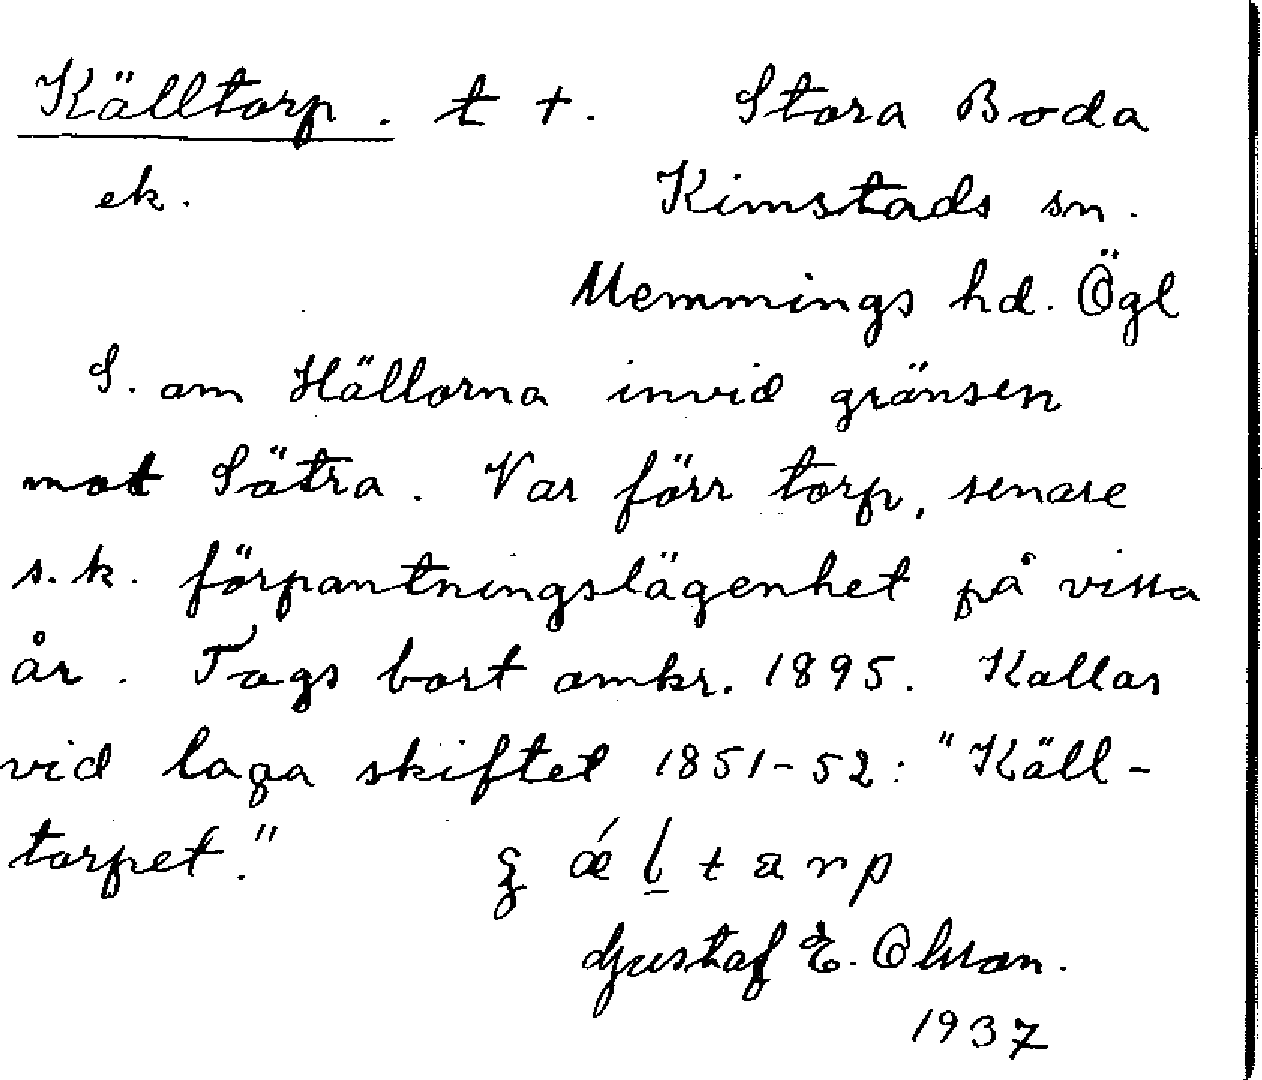 Källtorp. t +. Stora Boda
ek. Kimstads sn.
Memmings hd. Ögl
S. om Hällorna invid gränsen
mot Sätra. Var förr torp, senare
s.k. förpantningslägenhet på vissa
år. Togs bort omkr. 1895. Kallas
vid laga skiftet 1851-52: "Käll-
torpet."
Gustaf E. Olsson.
1937